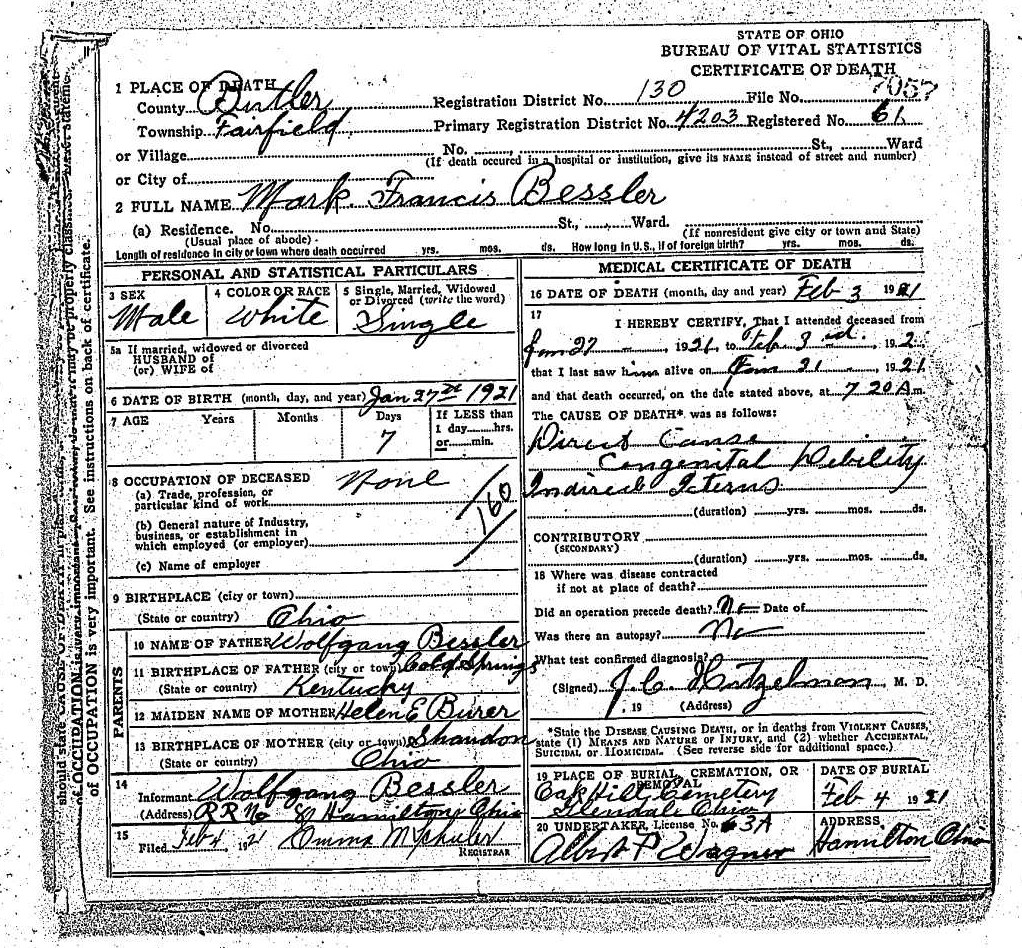 STATE OF OHIO
BUREAU OF VITAL STATISTICS
CERTIFICATE OF DEATH
1 PLACE OF DEATH
County Butler Registration District No. 130 File No. 7057
Township Fairfield, Primary Registration District No. 4203 Registered No. 61
or Village No. St., Ward
(If death occured in a hospital or institution, give its NAME instead of street and number)
or City of
2 FULL NAME Mark Francis Bessler
(a) Residence. No. St., Ward.
(Usual place of abode) (If nonresident give city or town and State)
Length of residence in city or town where death occurred yrs. mos. ds. How long in U.S., if of foreign birth? yrs. mos. ds.
PERSONAL AND STATISTICAL PARTICULARS
3 SEX 4 COLOR OR RACE 5 Single, Married, Widowed
or Divorced (write the word)
Male White Single
5a If married, widowed or divorced
HUSBAND of
(or) WIFE of
6 DATE OF BIRTH (month, day, and year) Jan 27th 1921
7 AGE Years Months Days If LESS than
1 day hrs.
7 or min.
8 OCCUPATION OF DECEASED None
(a) Trade, profession, or
particular kind of work
160
(b) General nature of Industry,
business, or establishment in
which employed (or employer)
(c) Name of employer
9 BIRTHPLACE (city or town)
(State or country) Ohio
PARENTS
10 NAME OF FATHER Wolfgang Bessler
11 BIRTHPLACE OF FATHER (city or town) Cold Springs
(State or country) Kentucky
12 MAIDEN NAME OF MOTHER Helen E Burer
13 BIRTHPLACE OF MOTHER (city or town) Shandon
(State or country) Ohio
14
Informant Wolfgang Bessler
(Address) R R No 8 Hamilton, Ohio
15
Filed Feb 4, 1921 Emma
REGISTRAR
MEDICAL CERTIFICATE OF DEATH
16 DATE OF DEATH (month, day and year) Feb 3 1921
17
I HEREBY CERTIFY, That I attended deceased from
Jan 27, 1921, to Feb 3rd, 192
that I last saw him alive on Jan 31, 1921
and that death occurred, on the date stated above, at 7 20 A m.
The CAUSE OF DEATH* was as follows:
Direct Cause
Congenital Debility
Indirect Icterus
(duration) yrs. mos. ds.
CONTRIBUTORY
(SECONDARY)
(duration) yrs. mos. ds.
18 Where was disease contracted
if not at place of death?
Did an operation precede death? No Date of
Was there an autopsy? No
What test confirmed diagnosis?
(Signed) J. C. , M. D.
, 19 (Address)
*State the DISEASE CAUSING DEATH, or in deaths from VIOLENT CAUSES,
state (1) MEANS AND NATURE OF INJURY, and (2) whether ACCIDENTAL,
SUICIDAL or HOMICIDAL. (See reverse side for additional space.)
19 PLACE OF BURIAL, CREMATION, OR
REMOVAL
Oak Hill Cemetery
Glendale Ohio
DATE OF BURIAL
Feb 4 1921
20 UNDERTAKER, License No. 63A
Albert P Wagner
ADDRESS
Hamilton Ohio
of OCCUPATION is very important. See instructions on back of certificate.